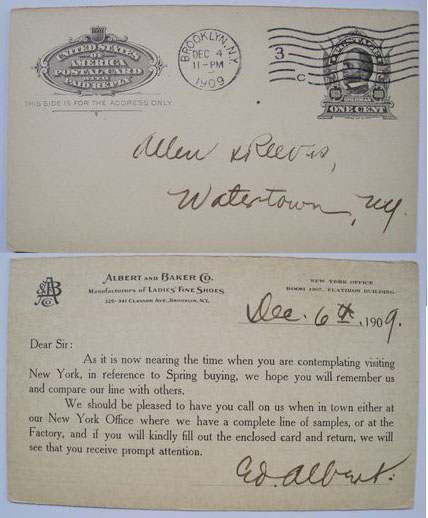 UNITED STATES
OF
AMERICA
POSTAL CARD
WITH
PAID REPLY.
THIS SIDE IS FOR THE ADDRESS ONLY.
BROOKLYN, N.Y.
DEC 4
11-PM
1909
3
C
ONE CENT
Allen & Reeves,
Watertown, N.Y.
A&B
Co
ALBERT AND BAKER CO.
Manufacturers of LADIES' FINE SHOES
325-341 CLASSON AVE., BROOKLYN, N.Y.
NEW YORK OFFICE
ROOM 1207, FLATIRON BUILDING.
Dec. 6th, 1909.
Dear Sir:
As it is now nearing the time when you are contemplating visiting
New York, in reference to Spring buying, we hope you will remember us
and compare our line with others.
We should be pleased to have you call on us when in town either at
our New York Office where we have a complete line of samples, or at the
Factory, and if you will kindly fill out the enclosed card and return, we will
see that you receive prompt attention.
Ed. Albert.